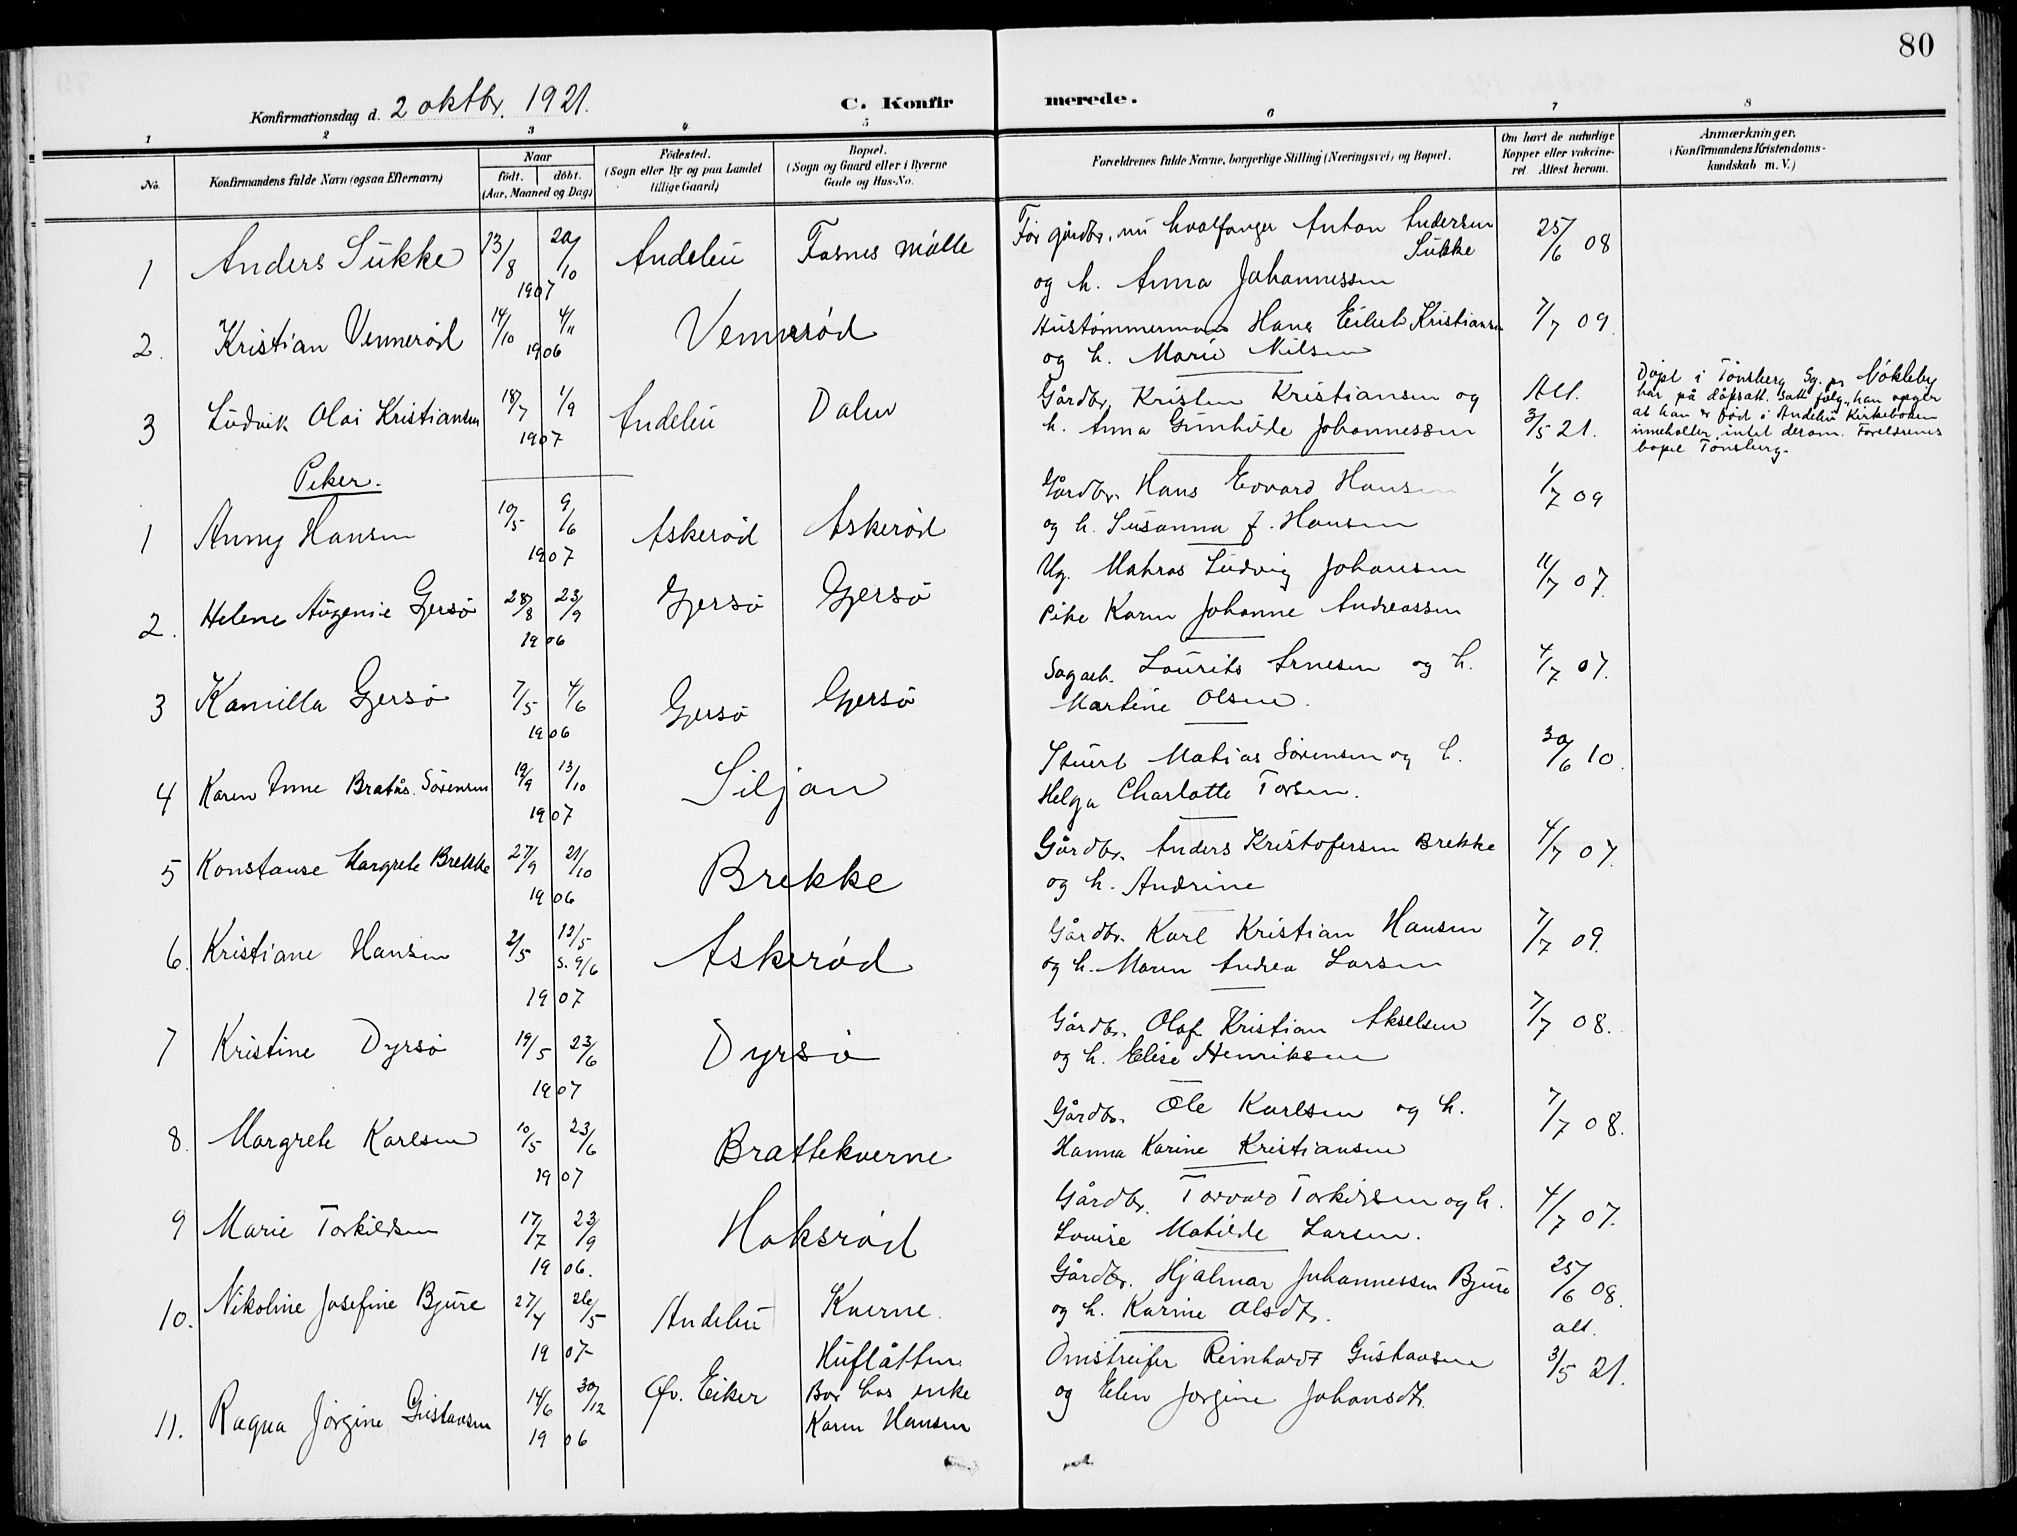 80
Konfirmationsdag d. 2 oktbr. 1921.
C. Konfirmerede.
1 2 3 4 5 6 7 8
No.
Konfirmandens fulde Navn (ogsaa Efternavn)
Naar
født. døbt.
(Aar, Maaned og Dag)
Födested.
(Sogn eller By og paa Landet
tillige Gaard)
Bopæl.
(Sogn og Gaard eller i Byerne
Gade og Hus-No.
Forældrenes fulde Navne, borgerlige Stilling (Næringsvei) og Bopæl.
Om havt de naturlige
Kopper eller vakcine-
ret. Attest herom.
Anmærkninger.
(Konfirmandens Kristendoms-
kundskab m. V.)
1 Anders Sukke 13/8 20/10 1907 Andebu Fosnes mølle
Før gårdbr. nu hvalfanger Anton Andersen
Sukke
og h. Anna Johannessen
25/6 08
2. Kristian Vennerød 14/10 4/11 1906 Vennerød
Hustømmermann Hans Eilert Kristiansen
og h. Marie Nilsen
7/7 09.
3 Ludvik Olai Kristiansen 18/7 1/9 1907 Andebu Dalen
Gårdbr. Kristen Kristiansen og
h. Anna Gunhilde Johannessen
Att.
3/5 21.
Døpt i Tønsberg Sg. pr Nøkleby
har på dåpsatt. satt følg. han opgir
at han er født i Andebu Kirkeboken
inneholder intet derom. Foreldrenes
bopel Tønsberg.
Piker.
1 Anny Hansen 10/5 9/6 1907 Askerød Askerød
Gårdbr. Hans Edvard Hansen
og h. Susanna J. Hansen
1/7 09
2. Helene Augenie Gjersø 28/8 23/9 1906 Gjersø Gjersø
Ug. Matros Ludvig Johansen
Pike Karen Johanne Andreassen
11/7 07.
3 Kamilla Gjersø 7/5 4/6 1906 Gjersø Gjersø
Sagarb. Lourits Arnesen og h.
Martine Olsen.
4/7 07.
4 Karen Anne Bratås Sørensen 19/9 13/10 1907 Siljan
Stuert Matias Sørensen og h.
Helga Charlotte Torsen.
30/6 10.
5 Konstanse Margrete Brekke 27/9 21/10 1906 Brekke
Gårdbr. Anders Kristofersen Brekke
og h. Andrine
4/7 07.
6. Kristiane Hansen 2/5 12/5 s. 9/6 1907 Askerød
Gårdbr. Karl Kristian Hansen
og h. Maren Andrea Larsen
7/7 09.
7 Kristine Dyrsø 19/5 23/6 1907 Dyrsø
Gårdbr. Olaf Kristian Akselsen
og h. Elise Henriksen
7/7 08.
8. Margrete Karlsen 10/5 23/6 1907 Brattekverne
Gårdbr. Ole Karlsen og h.
Hanna Karine Kristiansen
7/7 08.
9 Marie Torkildsen 17/7 23/9 1906. Hoksrød
Gårdbr. Torvald Torkildsen og h.
Lovise Matilde Larsen.
4/7 07.
10. Nikoline Josefine Bjure 27/4 26/5 1907 Andebu Kverne
Gårdbr. Hjalmar Johannessen Bjure
og h. Karine Olsdt.
25/6 08.
11. Ragna Jørgine Gustavsen 14/6 30/12 1906 Øv. Eiker
Huflåtten
Bor hos enke
Karen Hansen
Omstreifer Reinhardt Gustavsen
og Elen Jørgine Johansdt.
att.
3/5 21.